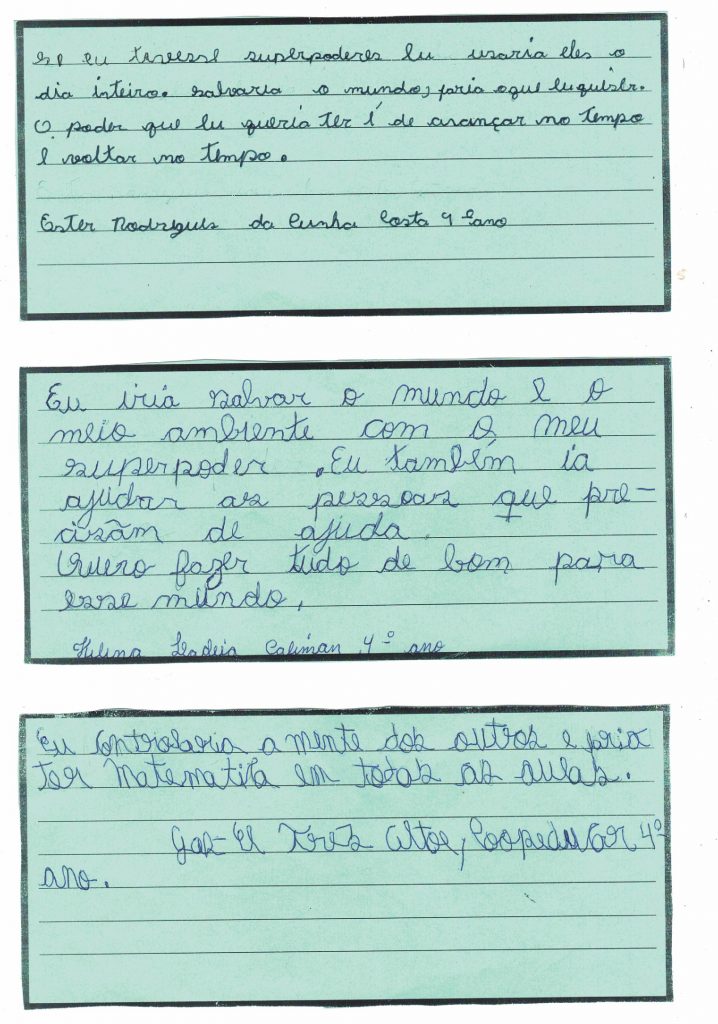 se eu tivesse superpoderes eu usaria eles o
dia inteiro. salvaria o mundo, faria o que eu quiser.
O poder que eu queria ter é de avançar no tempo
e voltar no tempo.
Ester Rodrigues da Cunha Costa 4º ano
Eu iria salvar o mundo e o
meio ambiente com o meu
superpoder .Eu também ia
ajudar as pessoas que pre-
cisãm de ajuda.
Quero fazer tudo de bom para
esse mundo,
Helena Caliman 4º ano
Eu controlaria a mente dos outros e faria
ter Matematica em todas as aulas.
Coopeducar 4º
ano.